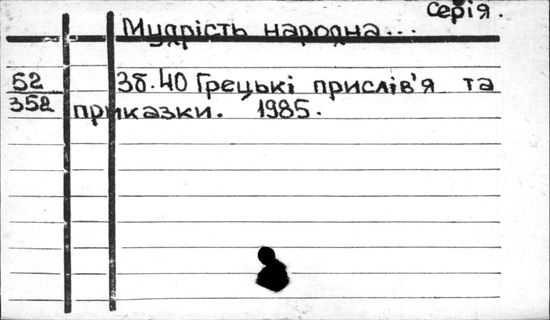 серія.
Мудрість народна...
52 Зб.40 Грецькі прислів'я та
358 приказки. 1985.